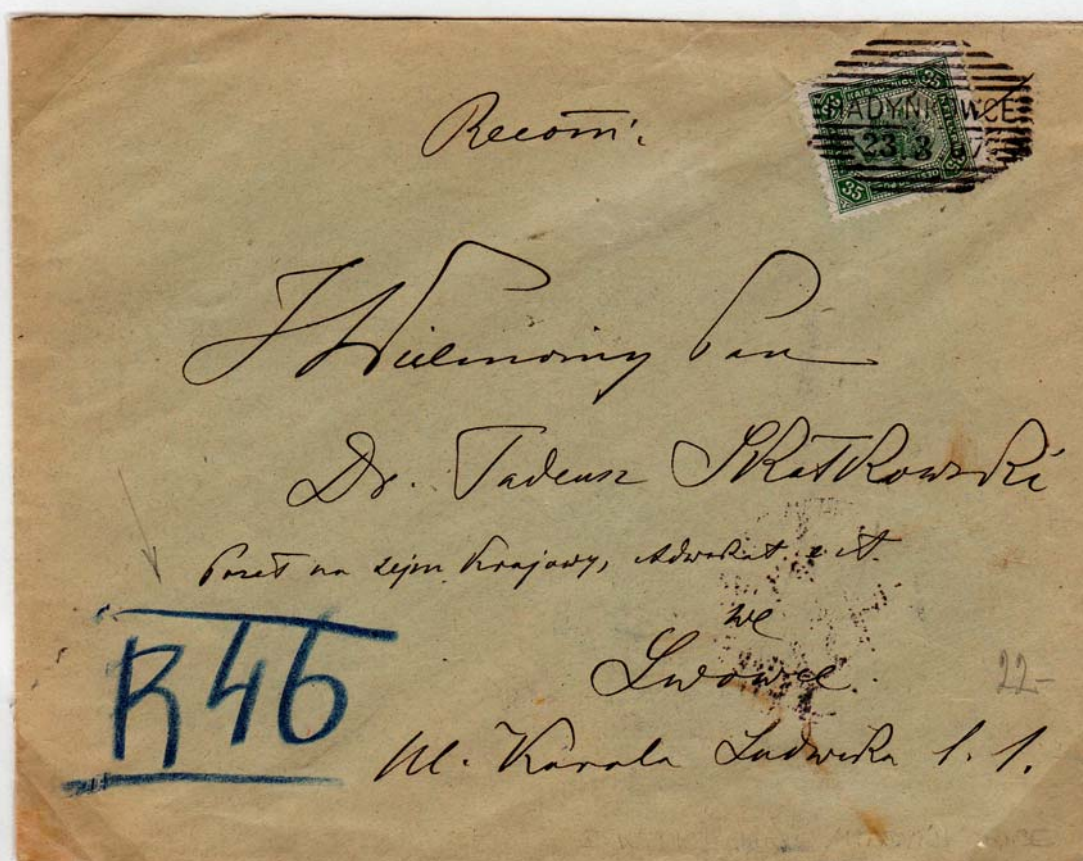 35 35
ADYNKOWCE
23 3
35 35
Recom̄:
JWielmożny Pan
Dr. Tadeusz Skałkowski
Poseł na sejm Krajowy, Adwokat
we
Lwowie.
Ul. Karola Ludwika l. 1.
R 46
22-